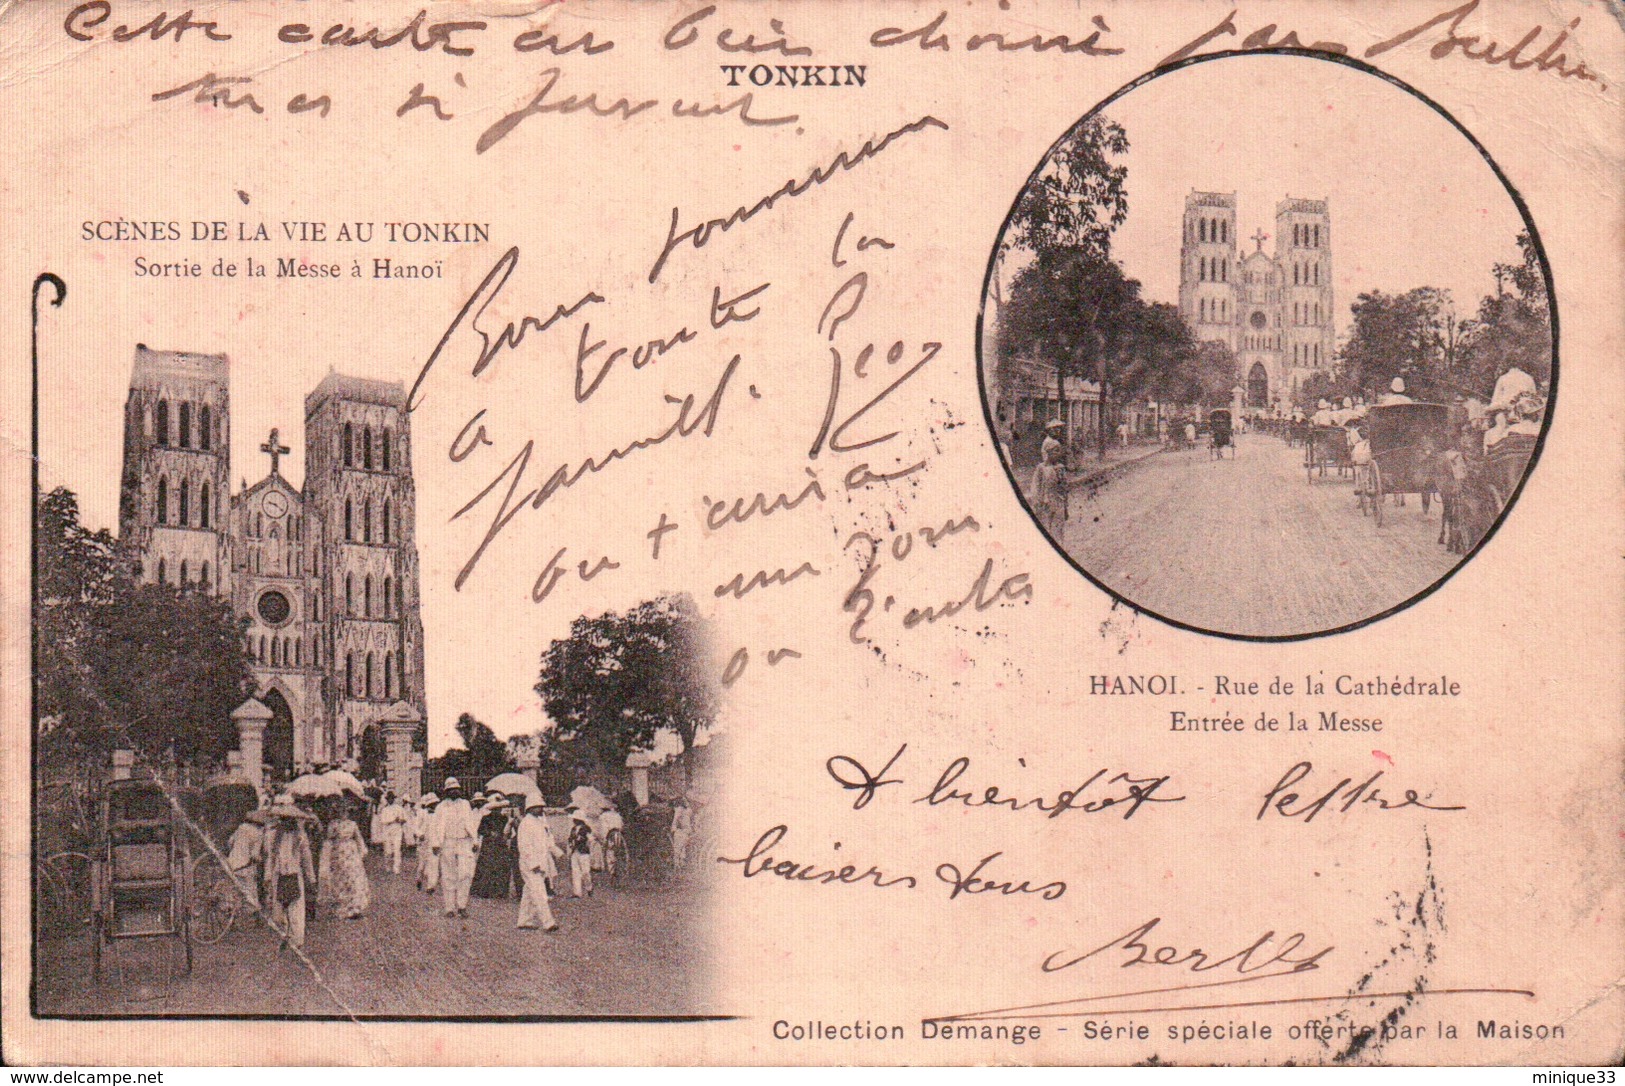 Cette carte est bien choisie par Berthe
TONKIN
SCÈNES DE LA VIE AU TONKIN
Sortie de la Messe à Hanoï
Bon
à toute la
famille.
on t'enverra
un jour
ou l'autre
HANOI. - Rue de la Cathédrale
Entrée de la Messe
A bientôt lettre
baisers tous
Berthe
Collection Demange - Série spéciale offerte par la Maison
www.delcampe.net
minique33